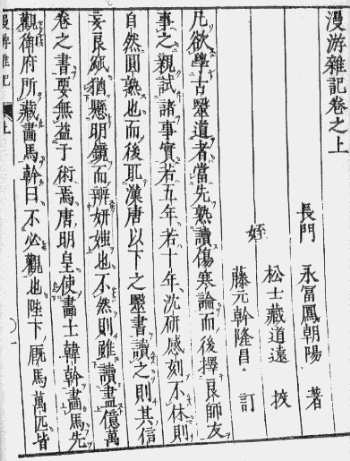 漫游雜記卷之上
長門 永冨鳳朝陽 著
姪 松士藏道遠 挍
藤元幹隆昌 訂
凡欲學古毉道者當先熟讀傷寒論而後擇良師友
事之親試諸事實若五年若十年沈研感刻不休則
自然圓熟也而後取漢唐以下之毉書讀之則其信
妄良窳猶懸明鏡而辨妍媸也不然則雖讀盡億萬
卷之書要無益于術焉唐明皇使畫士韓幹畫馬先
觀御府所藏畫馬幹曰不必觀也陛下厩馬萬匹皆
漫游雜記 上